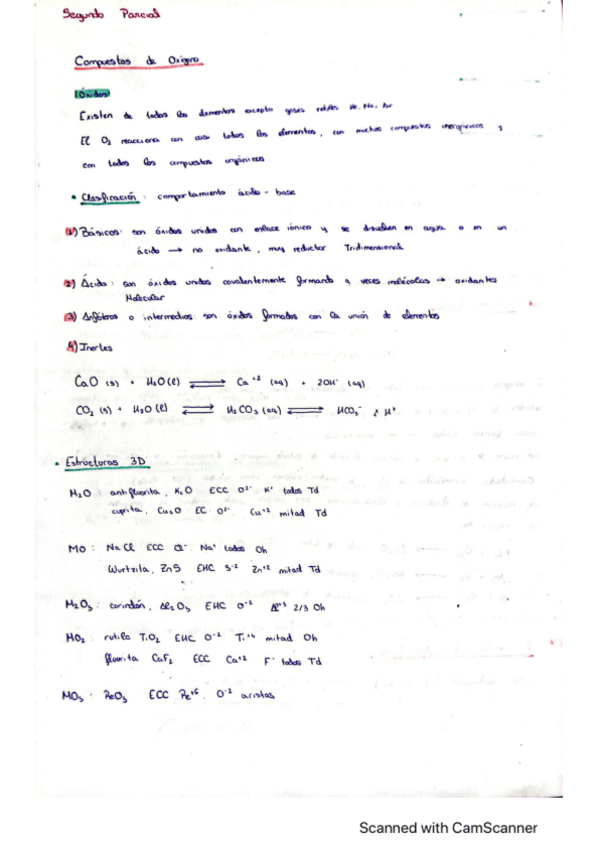 Segundo Parcial
Compuestos de Oxígeno
Óxidos
Existen de todos los elementos excepto gases nobles He, Ne, Ar
El O2 reacciona con casi todos los elementos, con muchos compuestos inorgánicos y
con todos los compuestos orgánicos.
• Clasificación: comportamiento ácido - base
1) Básicos: son óxidos unidos con enlace iónico y se disuelven en agua o en un
ácido → no oxidante, muy reductor Tridimensional
2) Ácido: son óxidos unidos covalentemente formando a veces moléculas → oxidantes
Molecular
3) Anfóteros o intermedios son óxidos formados con la unión de elementos
4) Inertes
CaO (s) + H2O(l) ⇌ Ca+2 (aq) + 2OH- (aq)
CO2 (s) + H2O(l) ⇌ H2CO3 (aq) ⇌ HCO3- H+
• Estructuras 3D
M2O: antifluorita, K2O ECC O2- K+ todos Td
cuprita, Cu2O EC O2- Cu+2 mitad Td
MO: NaCl ECC Cl- Na+ todos Oh
Wurtzita, ZnS EHC S-2 Zn+2 mitad Td
M2O3: corindón, Al2O3 EHC O-2 Al+3 2/3 Oh
MO2: rutilo TiO2 EHC O-2 Ti+4 mitad Oh
fluorita CaF2 ECC Ca+2 F- todos Td
MO3: ReO3 ECC Re+6 O-2 aristas
Scanned with CamScanner